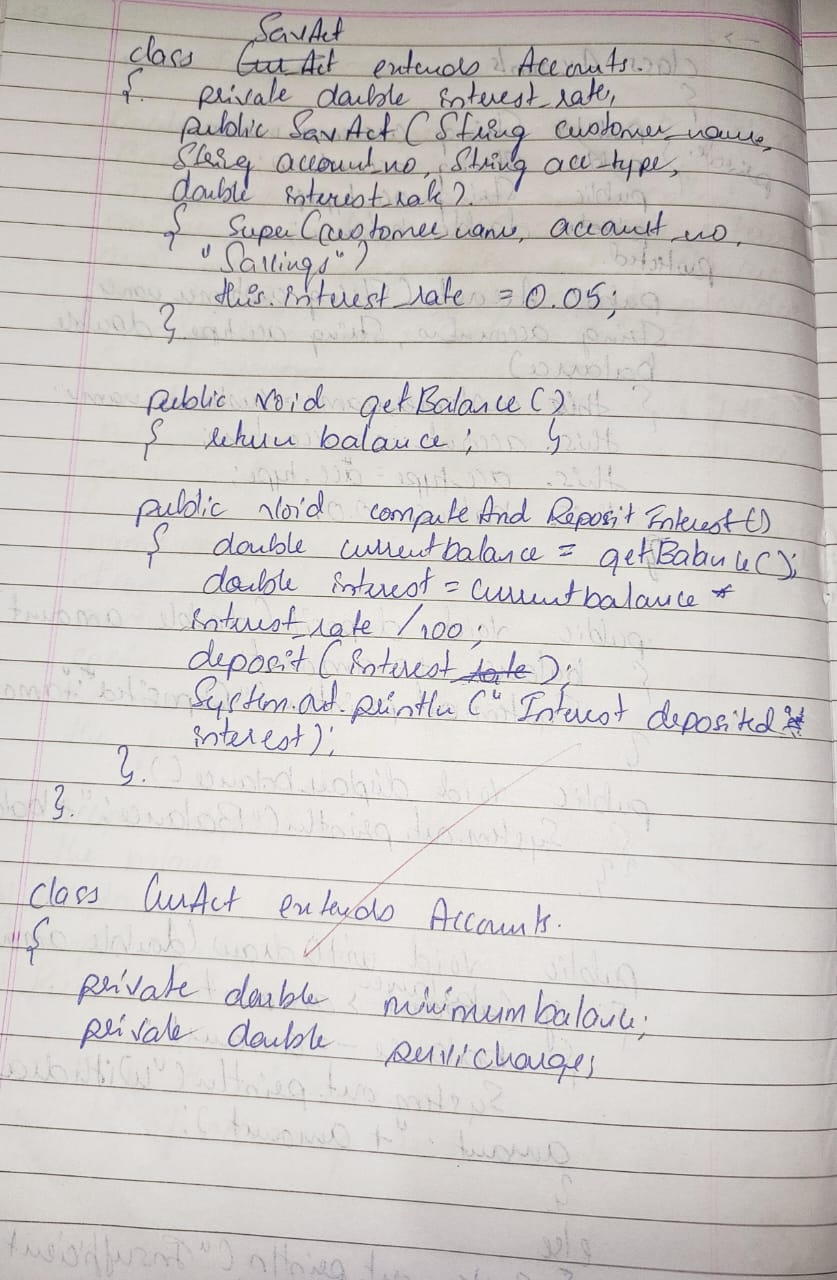 SavAct
class CurAct extends Accounts.
{. private double interest_rate,
public SavAct (String customer_name,
String account_no, String acc_type,
double interest_rate).
{ Super (customer_name, account_no,
"Savings")
this.interest_rate = 0.05;
}
public void getBalance ()
{ return balance; }
public void computeAnd Deposit Interest ()
{ double currentbalance = getBalance ();
double interest = currentbalance *
interest_rate /100;
deposit (interest rate);
System.out.println (" Interest deposited "+
interest);
}.
}.
class CurAct extends Accounts.
{
private double minimumbalance;
private double servicharges,